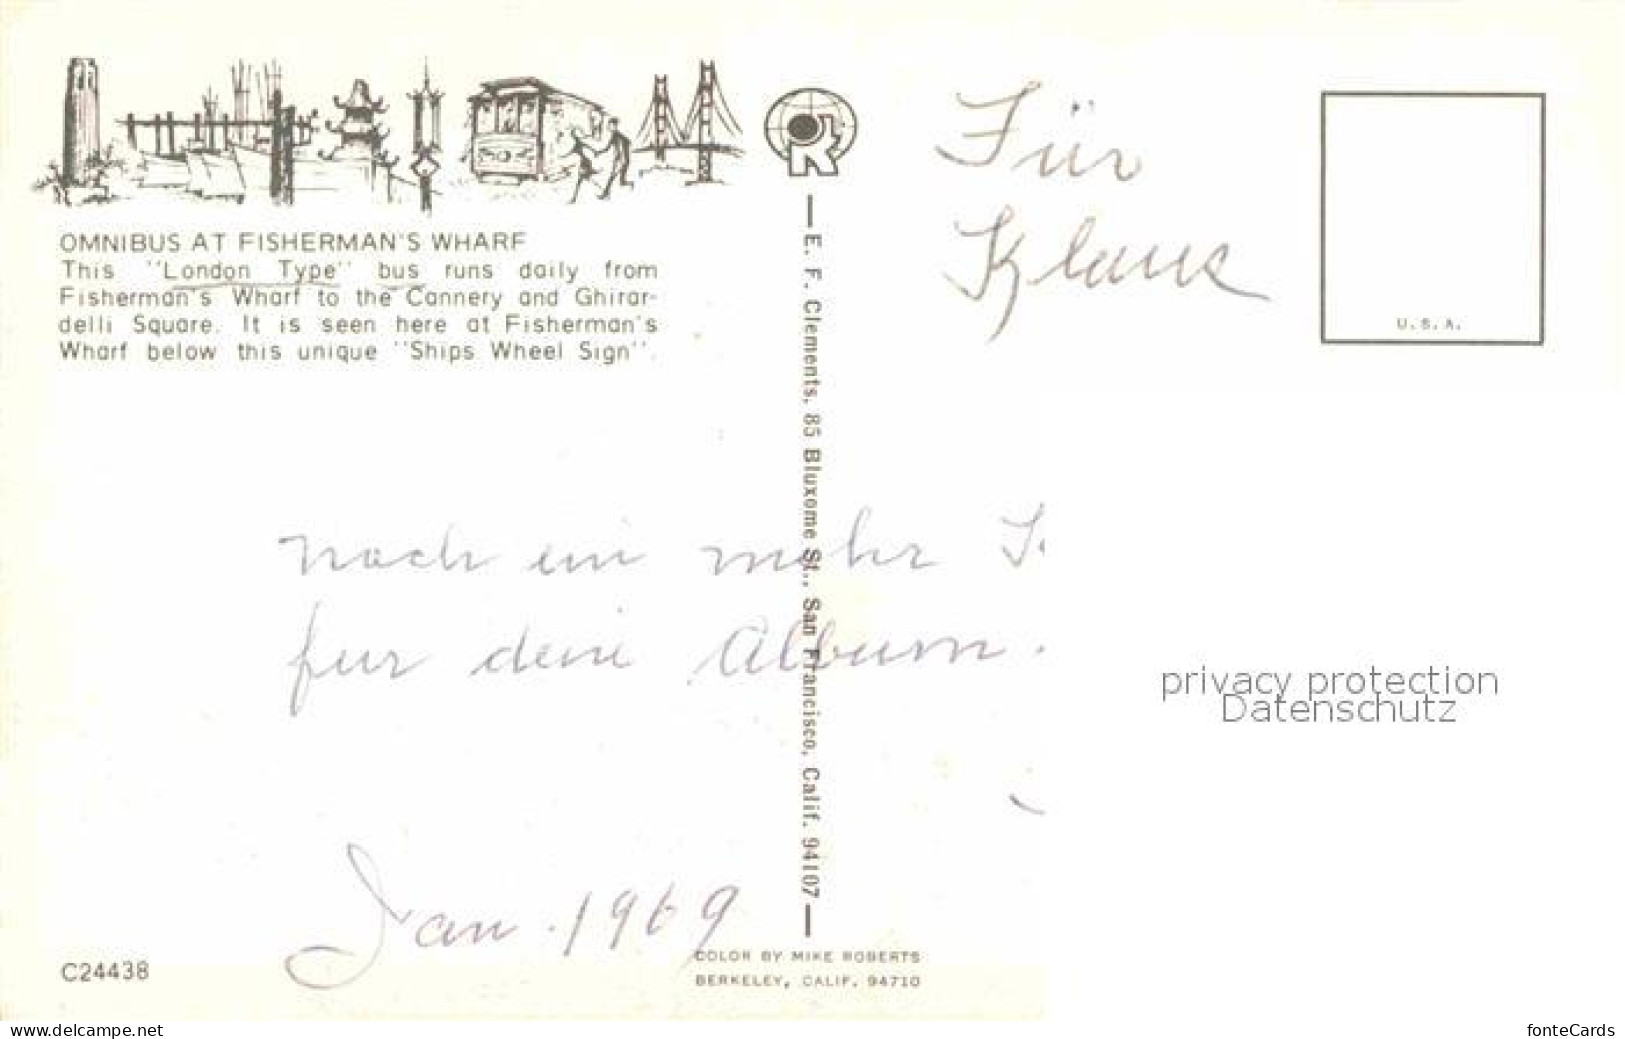 OMNIBUS AT FISHERMAN'S WHARF
This "London Type" bus runs daily from
Fisherman's Wharf to the Cannery and Ghirar-
delli Square. It is seen here at Fisherman's
Wharf below this unique "Ships Wheel Sign".
R
E. F. Clements, 85 Bluxome St., San Francisco, Calif. 94107
Für
Klaus
U.S.A.
noch ein mehr
fur deine Album.
Jan. 1969
privacy protection
Datenschutz
C24438
COLOR BY MIKE ROBERTS
BERKELEY, CALIF. 94710
www.delcampe.net
fonteCards